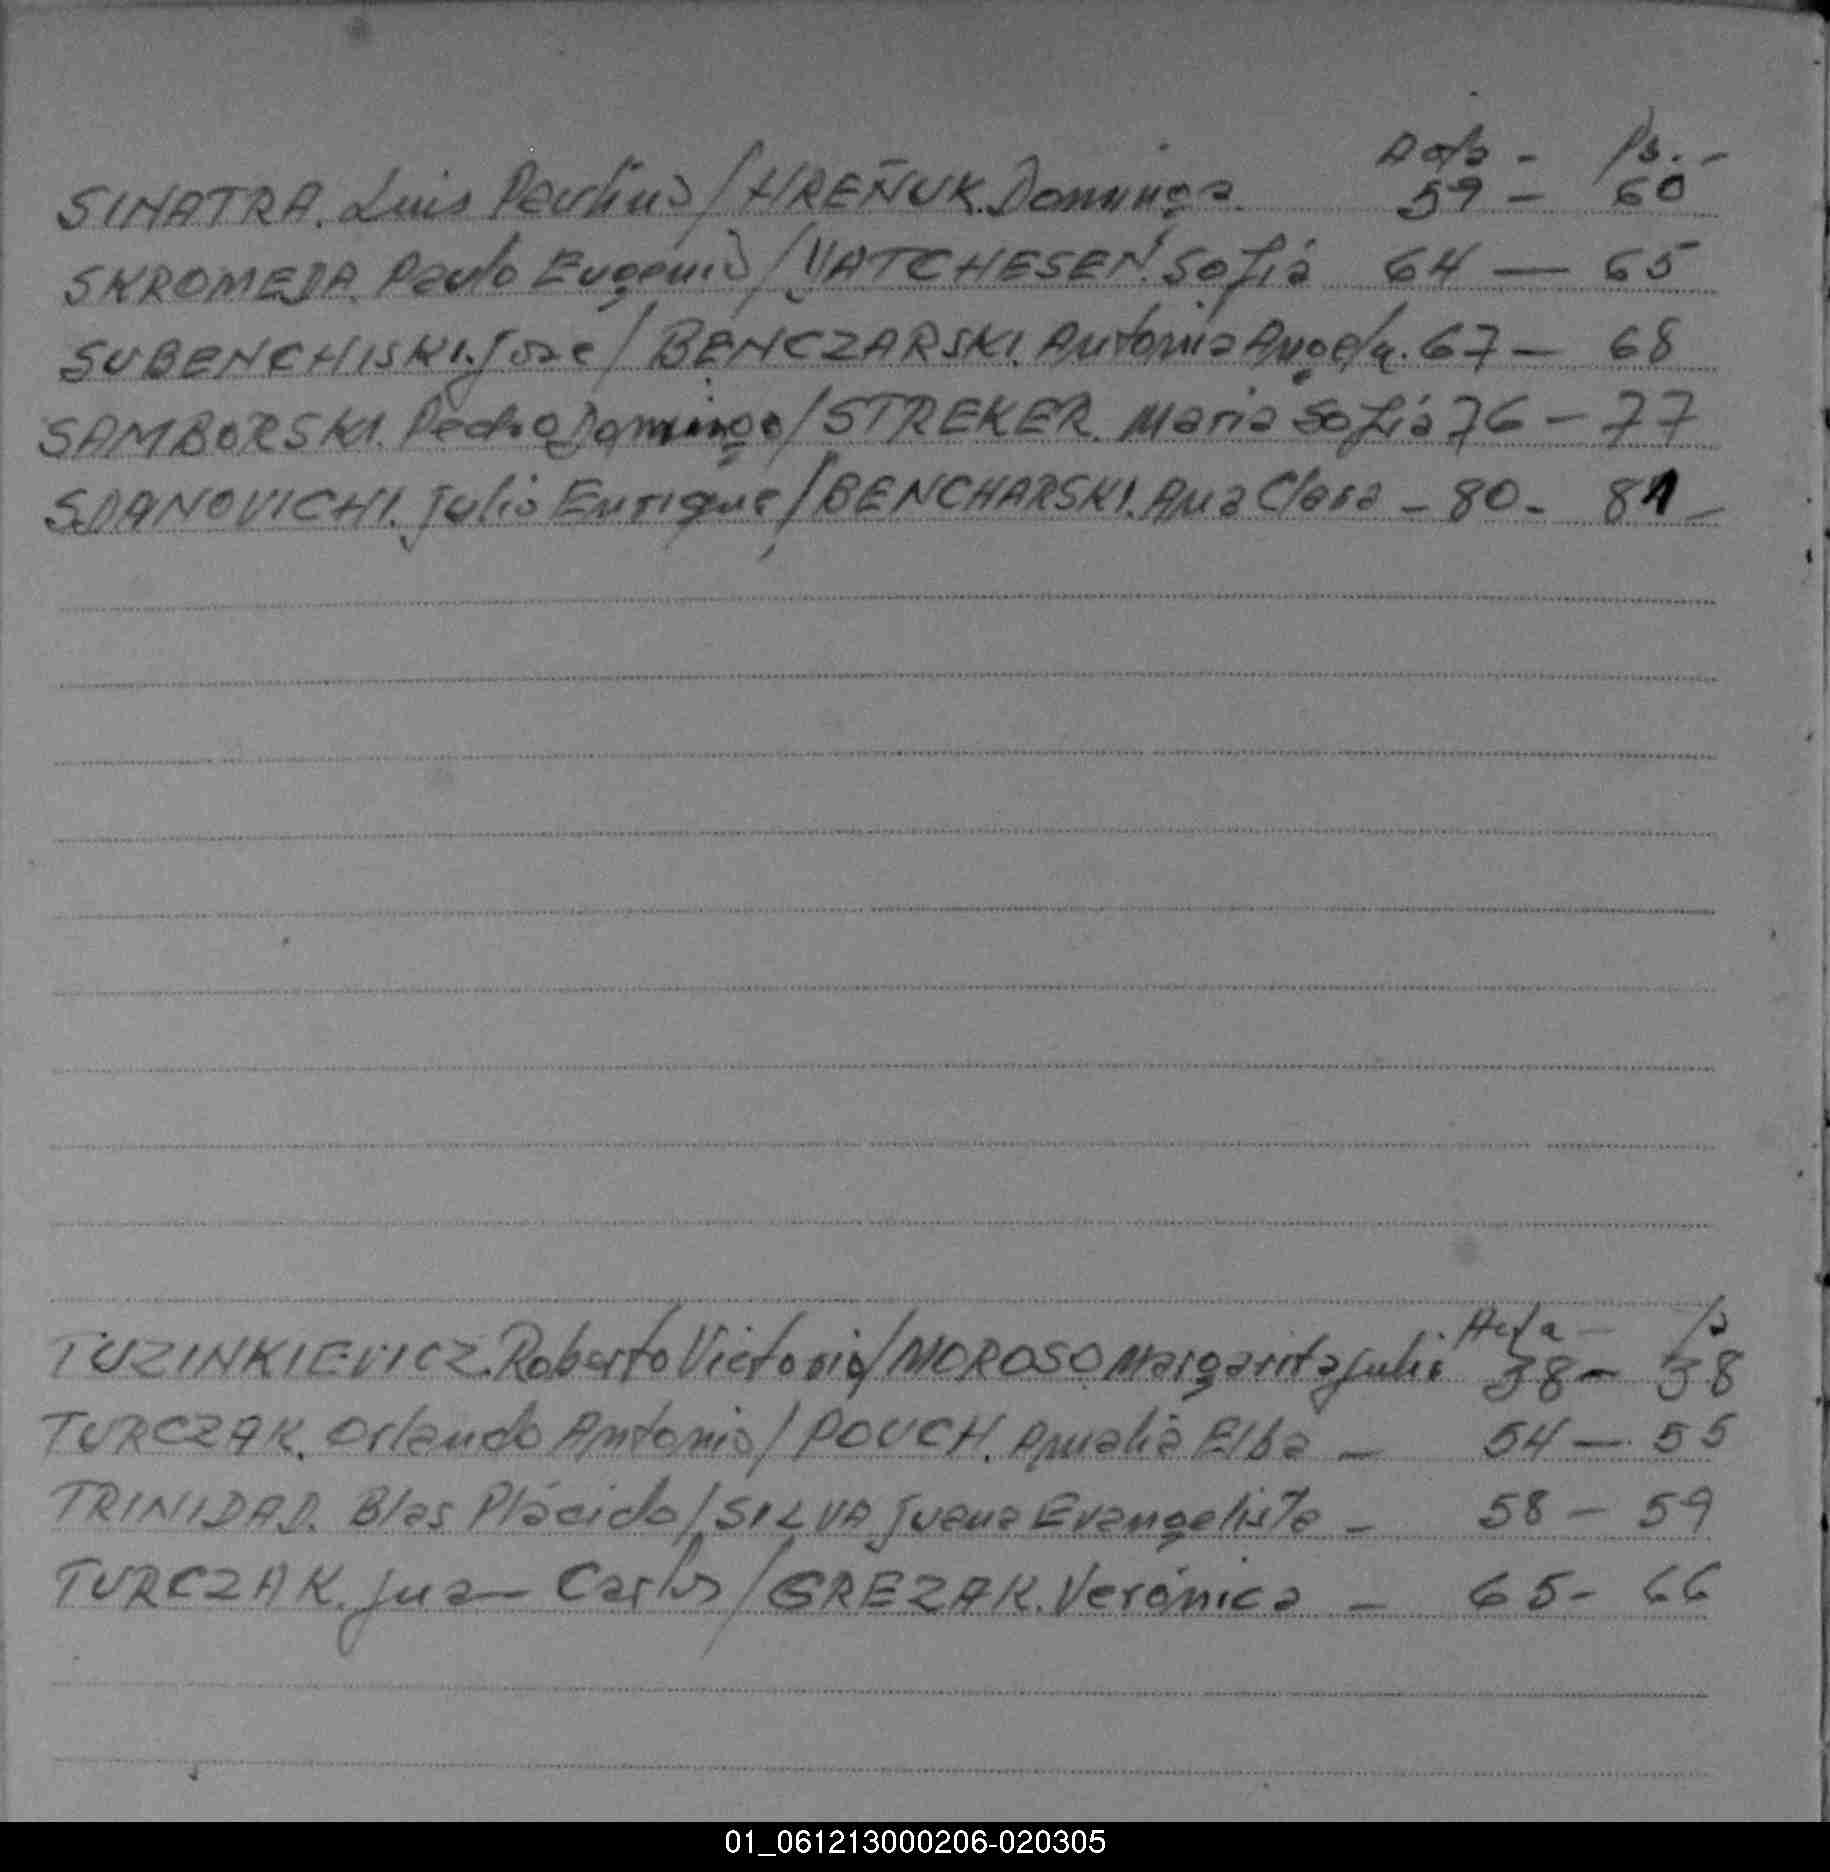 Acta - Fs. -
SINATRA. Luis Paulino / HREÑUK. Dominga. 59 - 60
SKROMEDA. Paulo Eugenio / YATCHESEN. Sofia 64 — 65
SUBENCHISKI. Jose / BENCZARSKI. Antonia Angela. 67 - 68
SAMBORSKI. Pedro Domingo / STREKER. Maria Sofia 76 - 77
SDANOVICHI. Julio Enrique / BENCHARSKI. Ana Clara - 80 - 81 -
Acta - Fs
TUZINKIEVICZ. Roberto Victorio / MOROSO Margarita Julia 38 - 38
TURCZAK. Orlando Antonio / POUCH. Amalia Elba - 54 - 55
TRINIDAD. Blas Plácido / SILVA Juana Evangelista - 58 - 59
TURCZAK. Juan Carlos / GREZAK. Verónica - 65 - 66
01_061213000206-020305